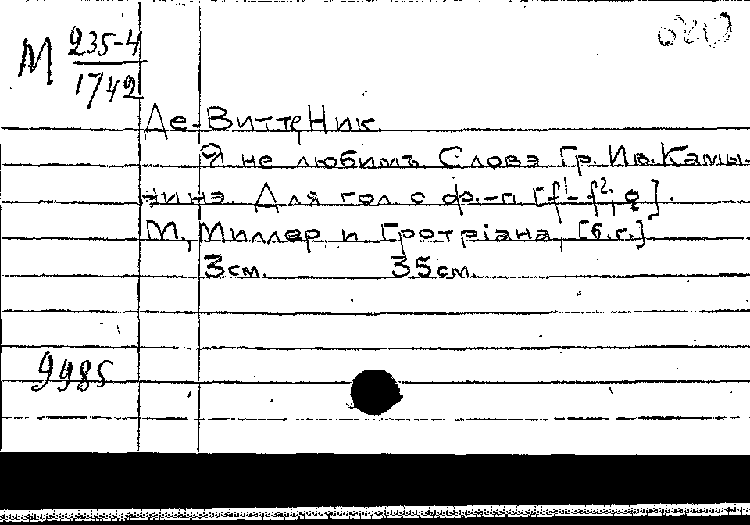 М 235-4
1742
Де-Витте, Ник.
Я не любимъ. Слова Гр. Ив. Камы-
нина. Для гол. с ф.-п. [f¹-f²; e].
М., Миллер и Гротріана, [б.г.]
3 см. 35 см.
9985